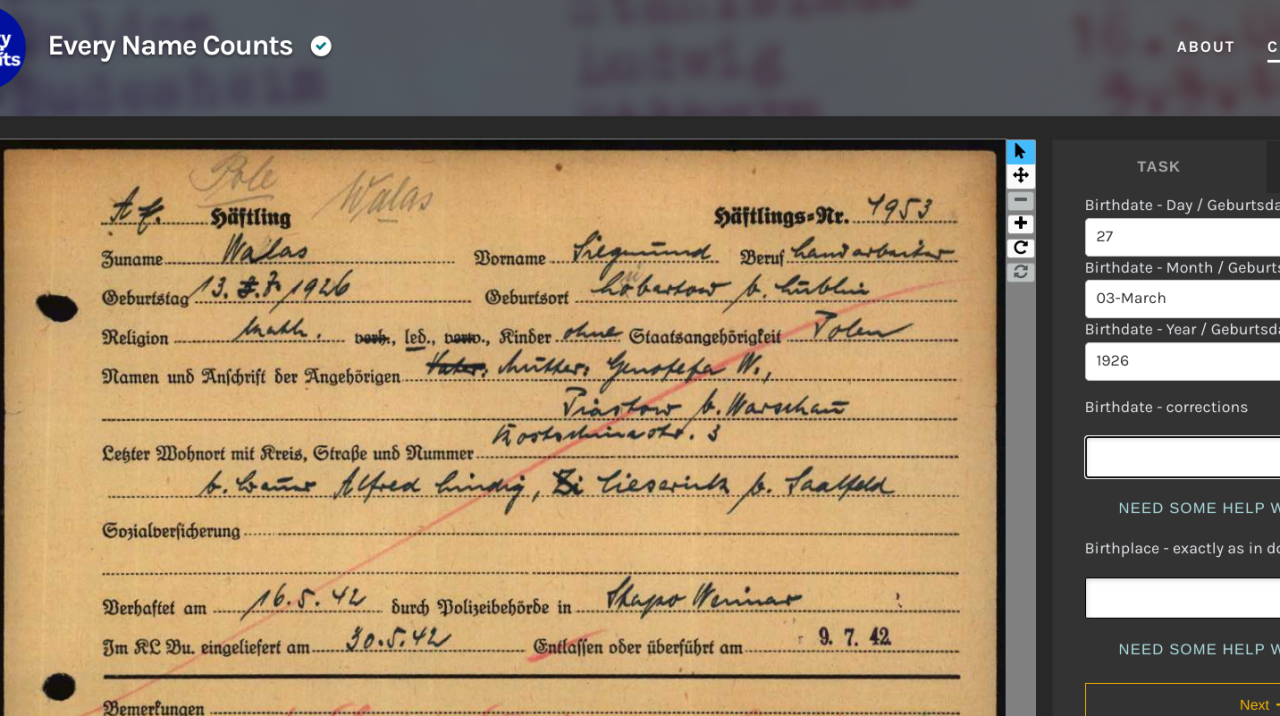 Every Name Counts
ABOUT
Pole
Walas
Häftling
Häftlings=Nr. 1953
Zuname Walas Vorname Siegmund Beruf Landarbeiter
Geburtstag 13. 7. 1926 Geburtsort b. Lublin
Religion kath. verh., led., verw., Kinder ohne Staatsangehörigkeit Polen
Namen und Anschrift der Angehörigen Vater, Mutter: Genofefa W.,
Piastow b. Warschau
3
Letzter Wohnort mit Kreis, Straße und Nummer
b. Bauer Alfred Lindig, b. Saalfeld
Sozialversicherung
Verhaftet am 16.5.42 durch Polizeibehörde in Stapo Weimar
Im KL Bu. eingeliefert am 30.5.42 Entlassen oder überführt am 9. 7. 42
Bemerkungen
TASK
Birthdate - Day / Geburtsda
27
Birthdate - Month / Geburts
03-March
Birthdate - Year / Geburtsda
1926
Birthdate - corrections
NEED SOME HELP W
Birthplace - exactly as in do
NEED SOME HELP W
Next